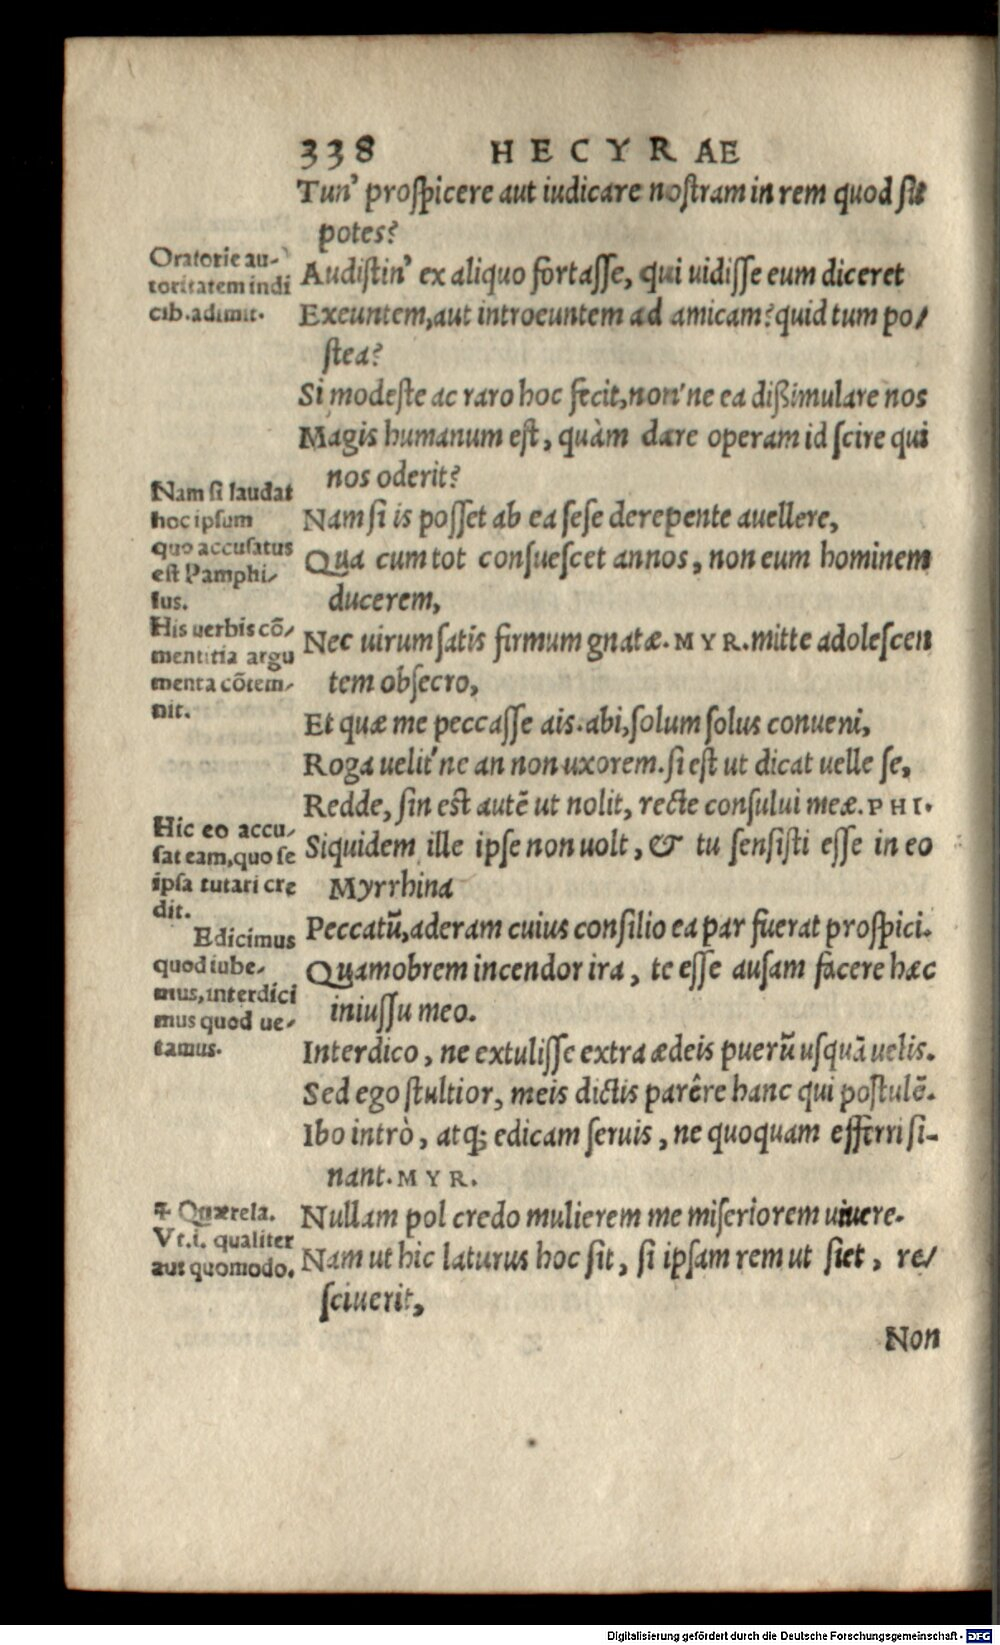 338 HECYRAE
Tun' proſpicere aut iudicare noſtram in rem quod ſit
potes?
Oratorie au-
toritatem indi
cib. adimit.
Audiſtin' ex aliquo fortaſſe, qui uidiſſe eum diceret
Exeuntem, aut introeuntem ad amicam? quid tum po/
ſtea?
Si modeſte ac raro hoc fecit, non'ne ea dißimulare nos
Magis humanum eſt, quàm dare operam id ſcire qui
nos oderit?
Nam ſi laudat
hoc ipſum
quo accuſatus
eſt Pamphi/
lus.
Nam ſi is poſſet ab ea ſeſe derepente auellere,
Qua cum tot conſueſcet annos, non eum hominem
ducerem,
His uerbis cō/
mentitia argu
menta cōtem/
nit.
Nec uirum ſatis firmum gnatæ. MYR. mitte adoleſcen
tem obſecro,
Et quæ me peccaſſe ais. abi, ſolum ſolus conueni,
Roga uelit'ne an non uxorem. ſi eſt ut dicat uelle ſe,
Redde, ſin est autē ut nolit, recte conſului meæ. PHI.
Hic eo accu/
ſat eam, quo ſe
ipſa tutari cre
dit.
Siquidem ille ipſe non uolt, & tu ſenſiſti eſſe in eo
Myrrhina
Edicimus
quod iube/
mus, interdici
mus quod ue/
tamus.
Peccatū, aderam cuius conſilio ea par fuerat proſpici.
Quamobrem incendor ira, te eſſe auſam facere hæc
iniuſſu meo.
Interdico, ne extuliſſe extra ædeis puerū uſquā uelis.
Sed ego ſtultior, meis dictis parêre hanc qui poſtulē.
Ibo intrò, atq; edicam ſeruis, ne quoquam efferri ſi-
nant. MYR.
⁜ Quærela.
Vt.i. qualiter
aut quomodo.
Nullam pol credo mulierem me miſeriorem uiuere.
Nam ut hic laturus hoc ſit, ſi ipſam rem ut ſiet, re/
ſciuerit,
Non
Digitalisierung gefördert durch die Deutsche Forschungsgemeinschaft - DFG